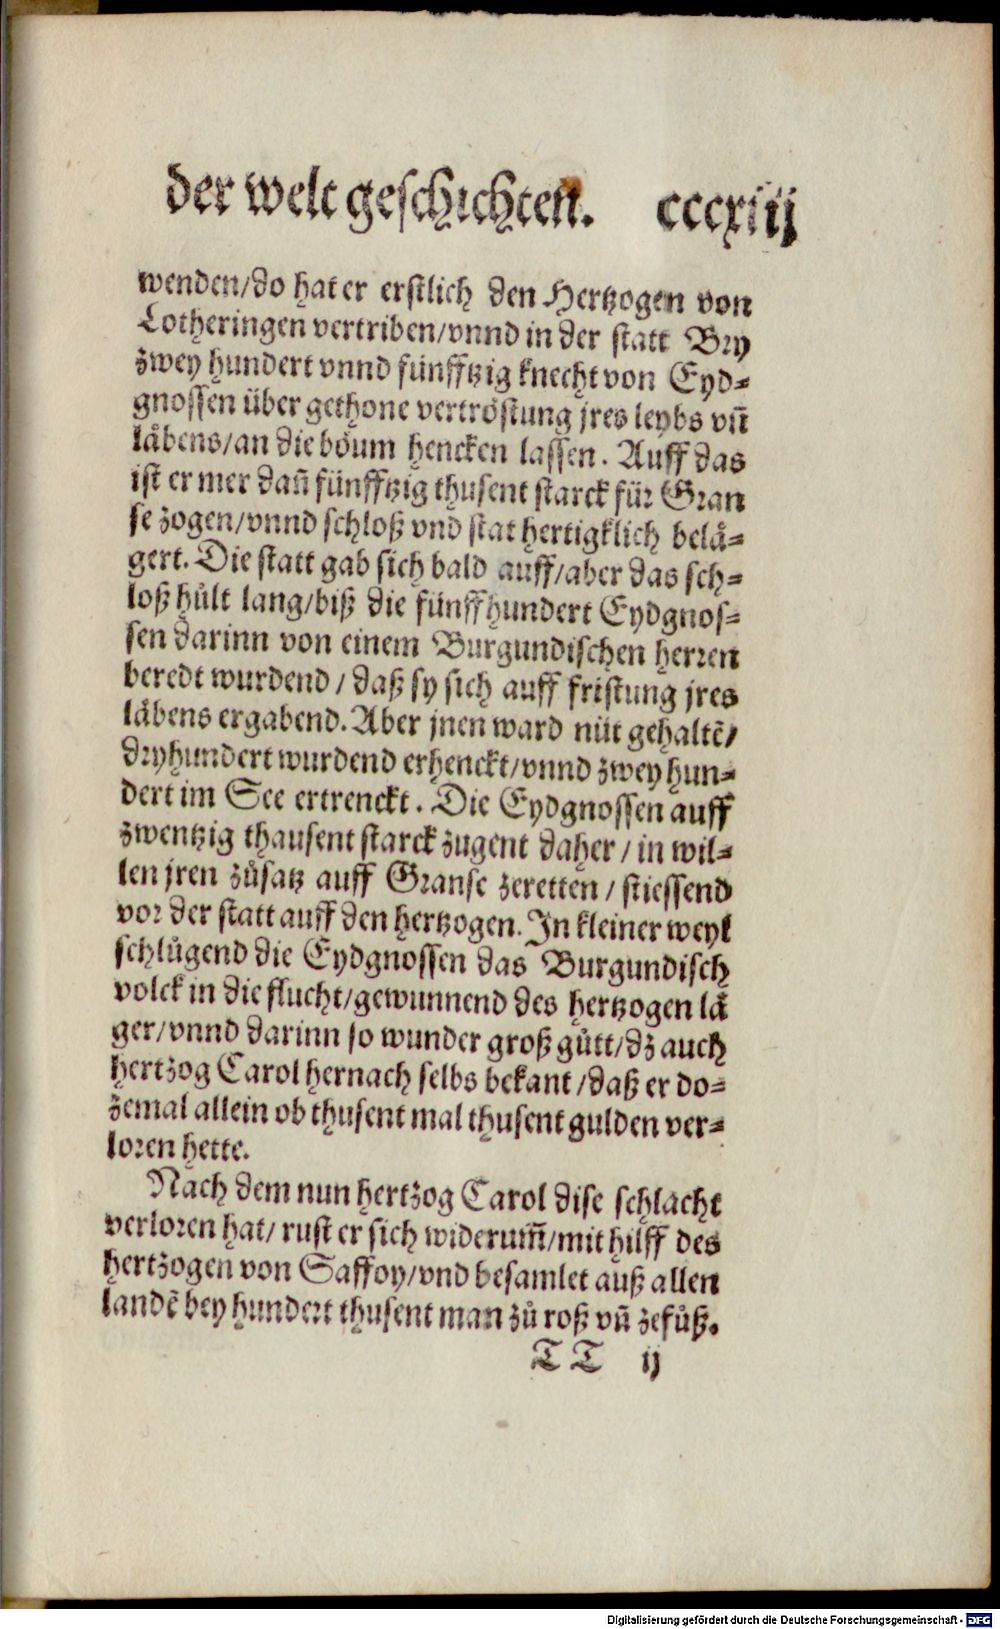 der welt geschichten. cccxiij
wenden/do hat er erstlich den Hertzogen von
Lotheringen vertriben/vnnd in der statt Bry
zwey hundert vnnd fünfftzig knecht von Eyd⸗
gnossen über gethone vertröstung jres leybs vñ
låbens/an die böum hencken lassen. Auff das
ist er mer dañ fünfftzig thusent starck für Gran
se zogen/vnnd schloß vnd stat hertigklich belå⸗
gert. Die statt gab sich bald auff/aber das sch⸗
loß hůlt lang/biß die fünffhundert Eydgnos⸗
sen darinn von einem Burgundischen herren
beredt wurdend/daß sy sich auff fristung jres
låbens ergabend. Aber jnen ward nüt gehaltẽ/
dryhundert wurdend erhenckt/vnnd zwey hun⸗
dert im See ertrenckt. Die Eydgnossen auff
zwentzig thausent starck zugent daher/in wil⸗
len jren zůsatz auff Granse zeretten/stiessend
vor der statt auff den hertzogen. In kleiner weyl
schlůgend die Eydgnossen das Burgundisch
volck in die flucht/gewunnend des hertzogen lå
ger/vnnd darinn so wunder groß gůtt/dz auch
hertzog Carol hernach selbs bekant/daß er do⸗
zemal allein ob thusent mal thusent gulden ver⸗
loren hette.
Nach dem nun hertzog Carol dise schlacht
verloren hat/rust er sich widerum̃/mit hilff des
hertzogen von Saffoy/vnd besamlet auß allen
landẽ bey hundert thusent man zů roß vñ zefůß.
TT ij
Digitalisierung gefördert durch die Deutsche Forschungsgemeinschaft - DFG